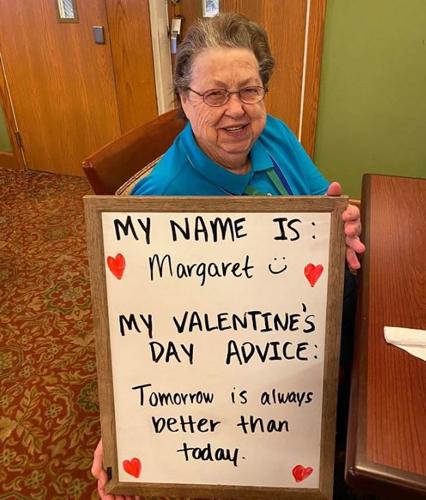 MY NAME IS:
Margaret ☺
MY VALENTINE'S
DAY ADVICE:
Tomorrow is always
better than
today.